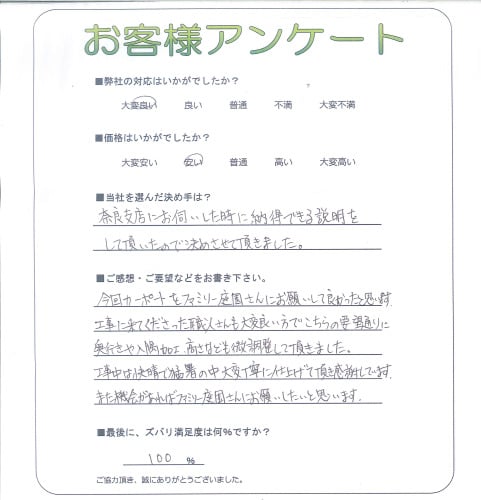 お客様アンケート
■弊社の対応はいかがでしたか？
大変良い 良い 普通 不満 大変不満
■価格はいかがでしたか？
大変安い 安い 普通 高い 大変高い
■当社を選んだ決め手は？
奈良支店にお伺いした時に納得できる説明を
して頂いたので決めさせて頂きました。
■ご感想・ご要望などをお書き下さい。
今回カーポートをファミリー庭園さんにお願いして良かったと思います
工事に来てくださった職人さんも大変良い方でこちらの要望通りに
奥行きや入隅加工、高さなども微調整して頂きました。
工事中は快晴で猛暑の中大変丁寧に仕上げて頂き感謝しています。
また機会があればファミリー庭園さんにお願いしたいと思います。
■最後に、ズバリ満足度は何％ですか？
100 %
ご協力頂き、誠にありがとうございました。